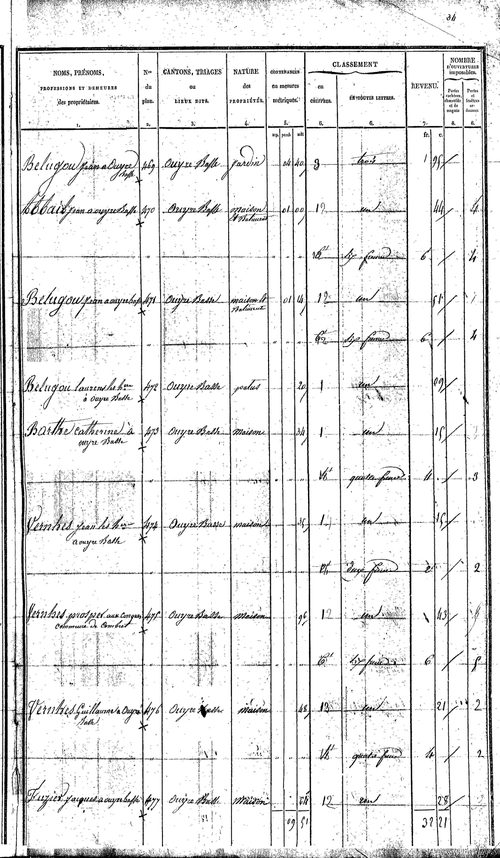 36
NOMS, PRÉNOMS,
PROFESSIONS ET DEMEURES
des propriétaires.
Nos
du
plan.
CANTONS, TRIAGES
OU
LIEUX DITS.
NATURE
des
PROPRIÉTÉS.
CONTENANCES
en mesures
métriques.
CLASSEMENT
en
chiffres.
EN TOUTES LETTRES.
REVENU.
NOMBRE
D'OUVERTURES
imposables.
1. 2. 3. 4. 5. 6. 6. 7. 8. 8.
fr. c.
Belugou jean a Ouyre Basse 469 Ouyre Basse jardin 04 40 3 trois 1 95
Abbail jean a ouyre Basse 470 Ouyre Basse maison et Batiment 01 00 12 un 44 4
6 4
Belugou jean a ouyre basse 471 Ouyre Basse maison et Batiment 01 14 12 un 51
6 4
Belugou laurens les hers a Ouyre Basse 472 Ouyre Basse patus 20 1 un 09
Barthe catherine à ouyre Basse 473 Ouyre Basse maison 34 1 un 15
4 3
Vernhes jean les hers a ouyre Basse 474 Ouyre Basse maison 35 1 un 15
2
Vernhes prosper aux Conques commune de Combret 475 Ouyre Basse maison 96 12 un 43
6 5
Vernhes Guillaume a Ouyre Basse 476 Ouyre Basse maison 48 12 un 21 2
4 2
Fuzier jacques a ouyre basse 477 Ouyre Basse Maison 12 un 28
09 51 32 21